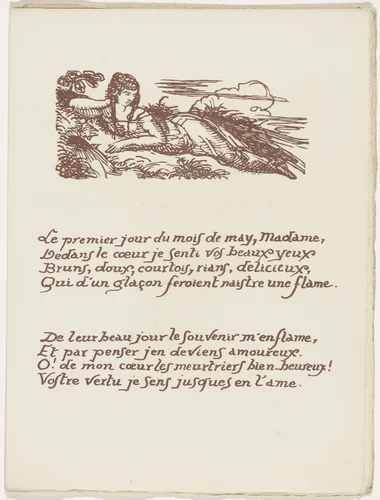 Le premier jour du mois de may, Madame,
Dedans le cœur je senti vos beaux yeux
Bruns, doux, courtois, rians, delicieux,
Qui d'un glaçon feroient naistre une flame.
De leur beau jour le souvenir m'enflame,
Et par penser j'en deviens amoureux.
O! de mon cœur les meurtriers bien-heureux!
Vostre vertu je sens jusques en l'ame.